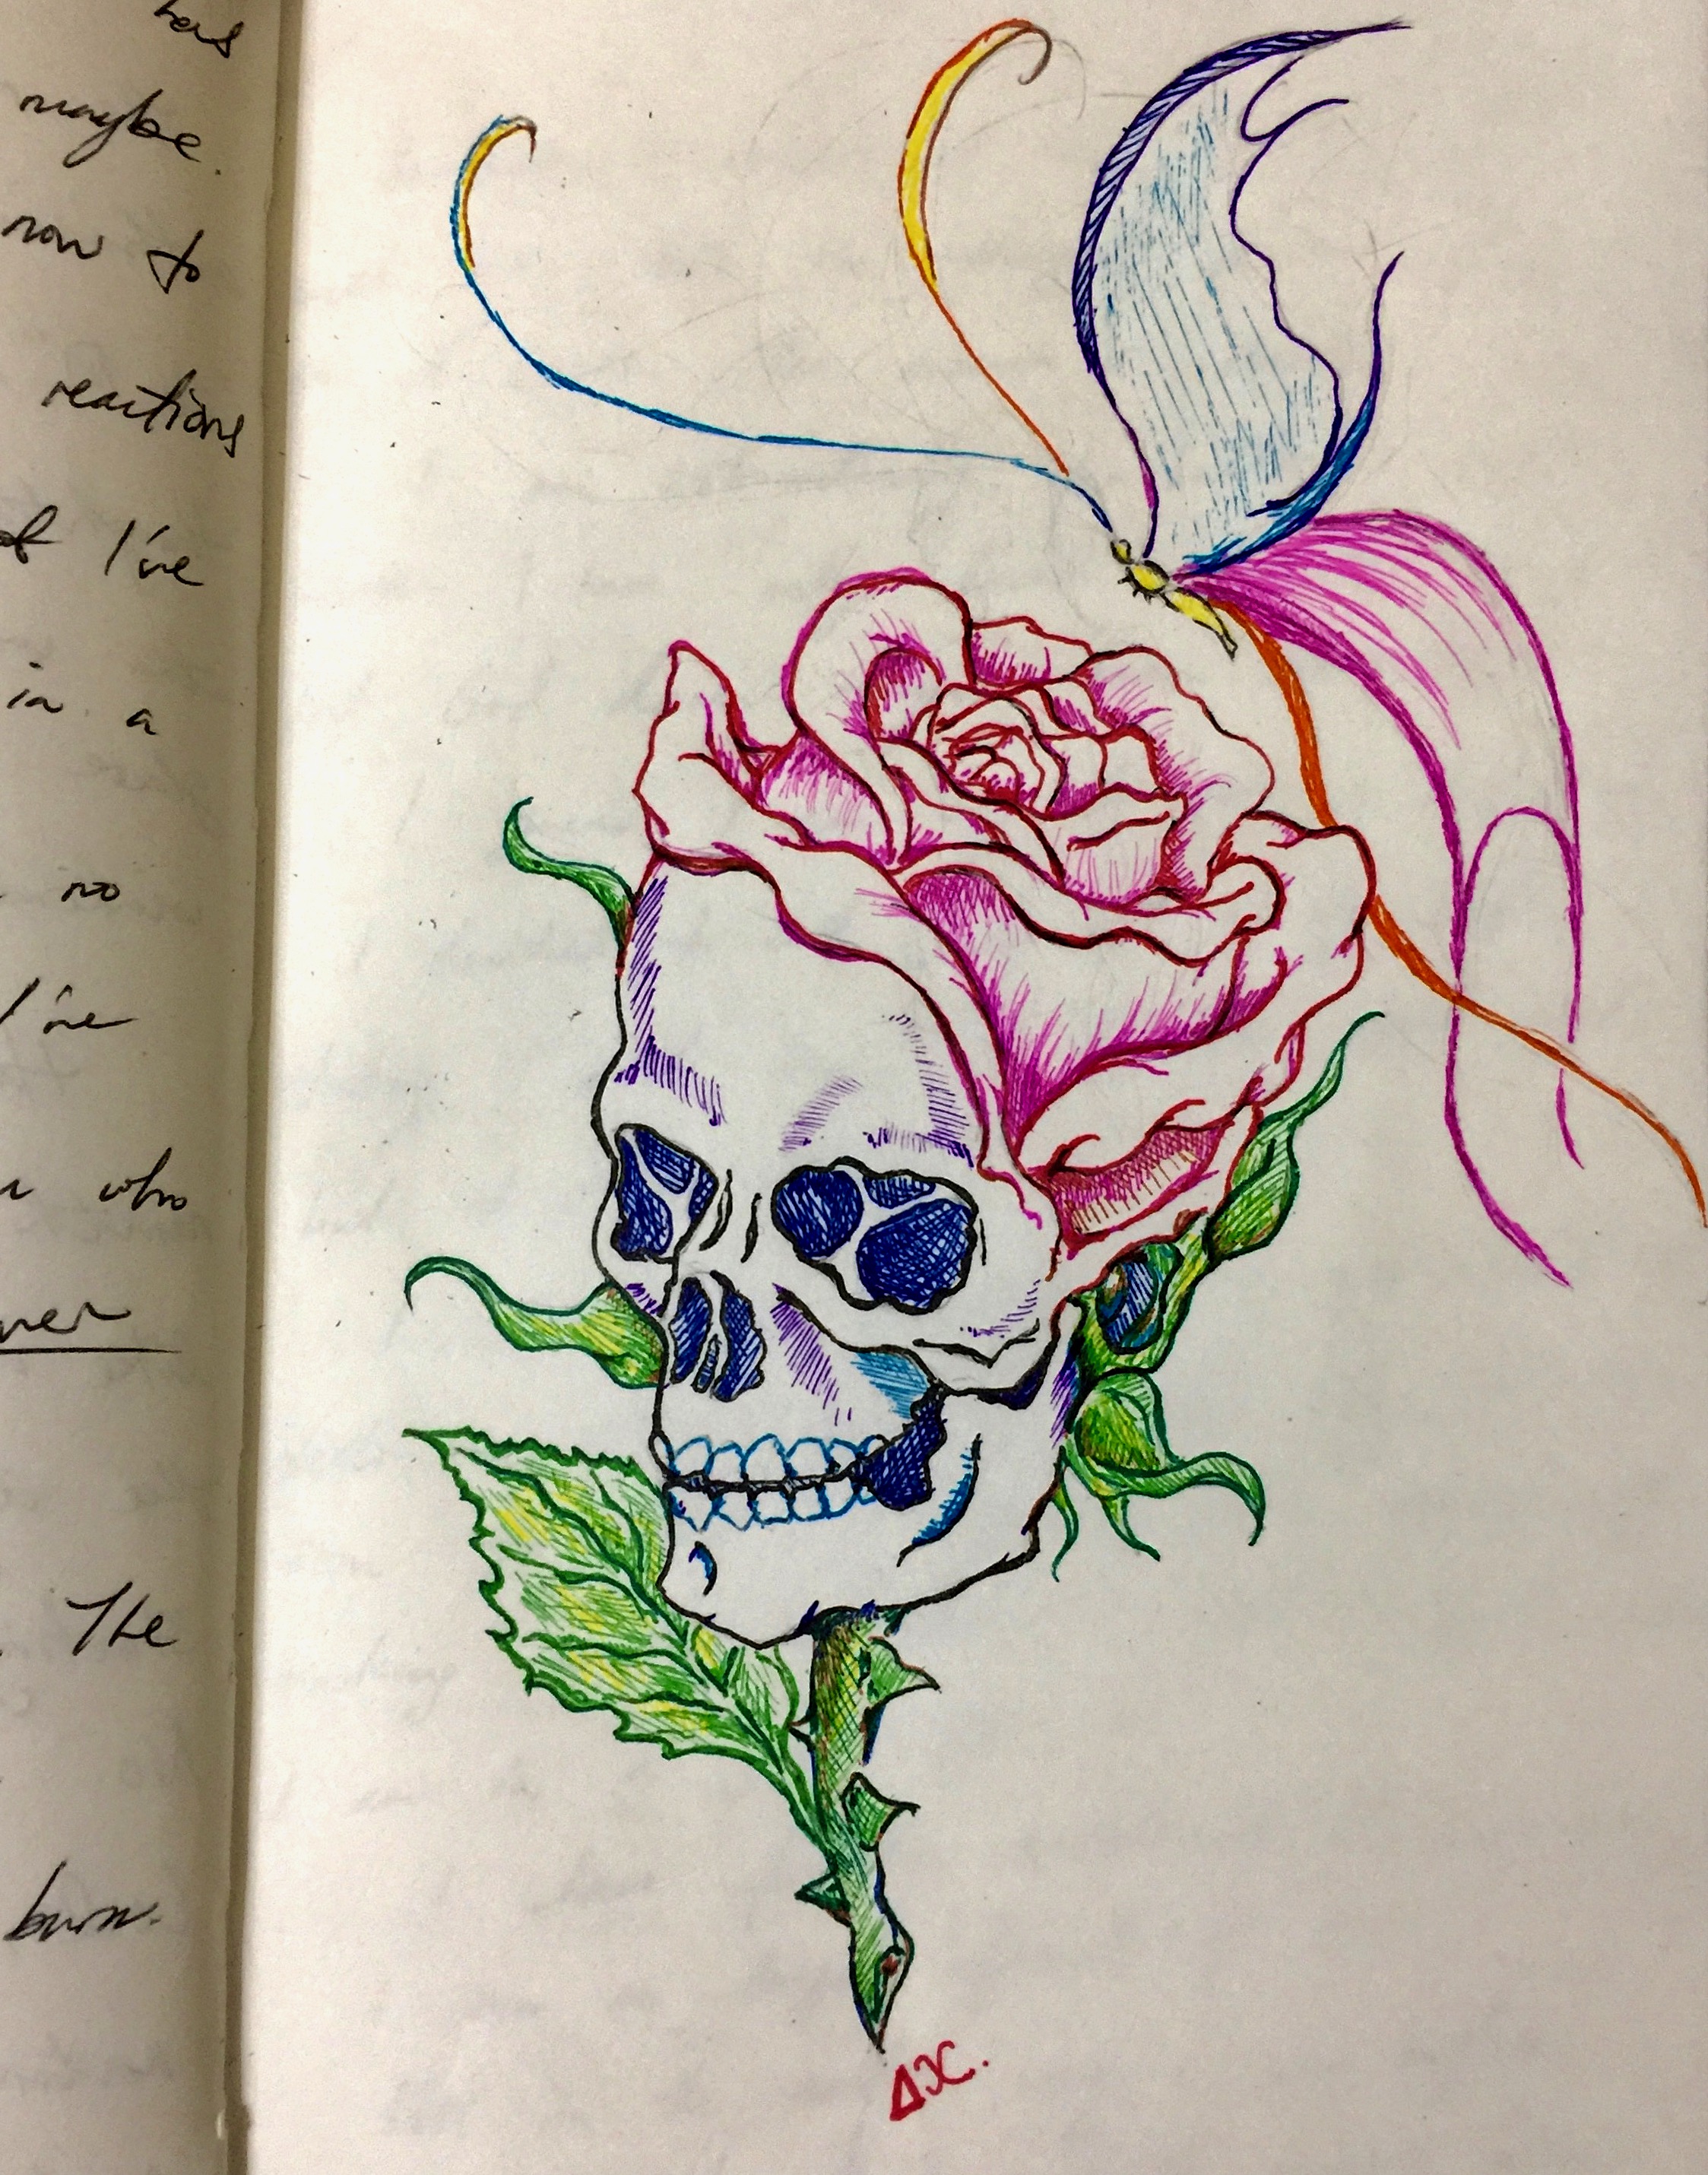 has
maybe.
now to
reactions
of I've
in a
no
I've
who
The
burn.
ΔX.